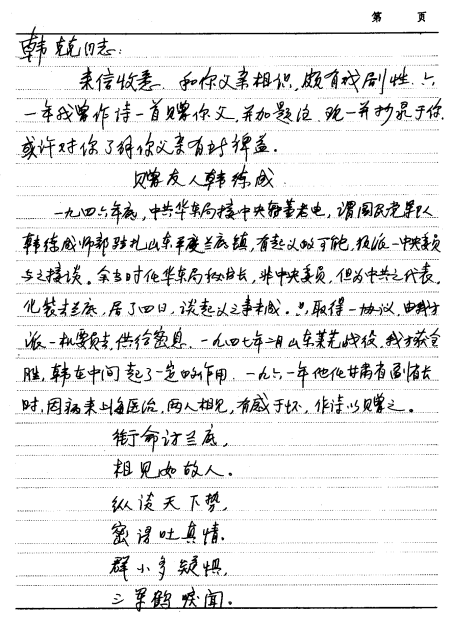 第 页
韩兢同志:
来信收悉。和你父亲相识,颇有戏剧性。六
一年我曾作诗一首赠你父,并加题注,现一并抄录于你,
或许对你了解你父亲有所裨益。
赠友人韩练成
一九四六年底,中共华东局接中央董老电,谓国民党军人
韩练成师部驻扎山东平度兰底镇,有起义的可能,须派一中央委员
与之接谈。余当时任华东局秘书长,非中央委员,但为中共之代表,
化装去兰底,居了四日,谈起义之事未成。只取得一协议,由我方
派一机要员去,供给密息。一九四七年二月山东莱芜战役,我方获全
胜,韩在中间起了一定的作用。一九六一年他任甘肃省副省长
时,因病来上海医治,两人相见,有感于怀,作诗以赠之。
衔命访兰底,
相见如故人。
纵谈天下势,
密语吐真情。
群小多疑惧,
三军鹤唳闻。